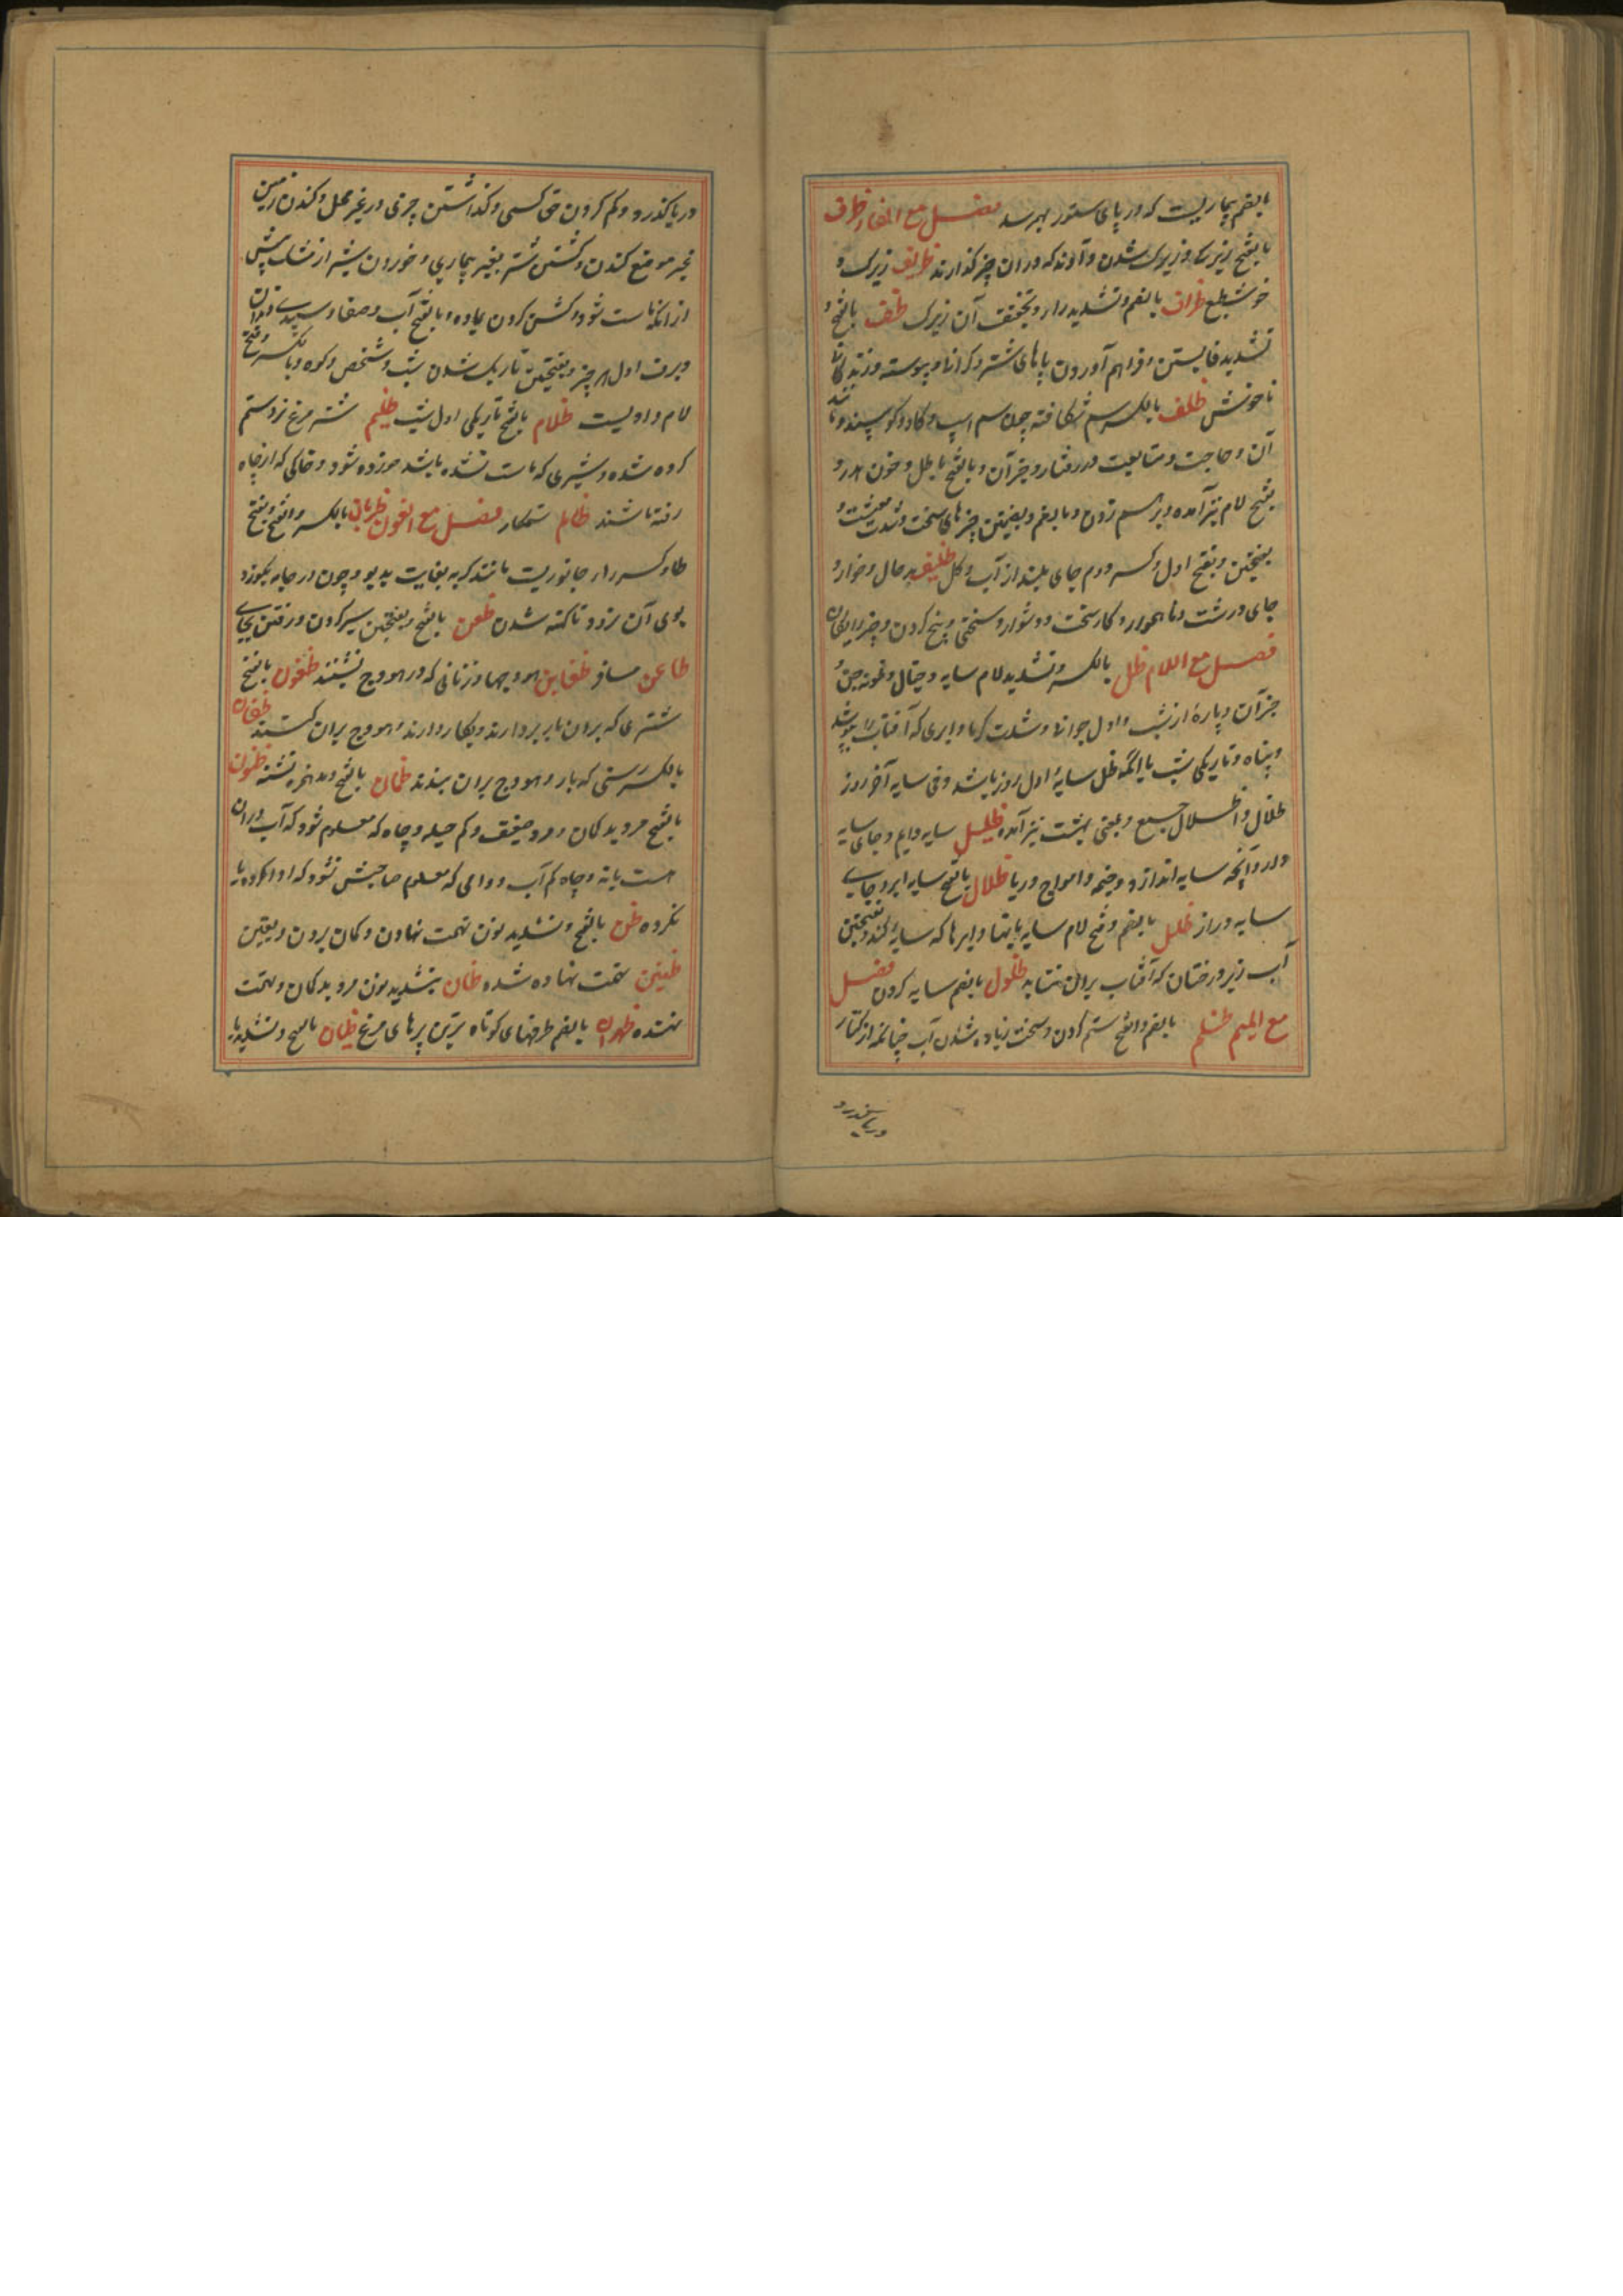 بالضم بیماریست که در پای ستور بهم رسد فصل مع الفاء ظرف
بالفتح زیرکی و زیرک شدن و آوند که در آن چیز گذارند ظریف زیرک و
خوش طبع ظراف بالضم و تشدید را و تخفیف آن زیرک ظف بالفتح و
تشدید فا بستن و فراهم آوردن پاهای شتر و کرانه و پیوسته و زندگانی
ناخوش ظلف بالکسر سم شکافته چون سم اسپ و گاو و گوسپند و مانند
آن و حاجت و متابعت در رفتار و جز آن و بالفتح باطل و خون هدر و
بفتح لام نیز آمده و بر سم زدن و بالضم و بضمتین چیزهای سخت و شدت معیشت و
بفتحتین و بفتح اول و کسر دوم جای بلند از آب و گل ظلیف بد حال و خوار و
جای درشت و ناهموار و کار سخت و دشوار و سختی و بیخ گردن و چیز رایگان
فصل مع اللام ظل بالکسر و تشدید لام سایه و خیال و نمونه جن و
جز آن و پارهٔ از شب و اول جوانی و شدت گرما و ابری که آفتاب را بپوشد
و پناه و تاریکی شب یا آنکه ظل سایهٔ اول روز باشد و فی سایه آخر روز
ظلال و اظلال جمع و بمعنی بهشت نیز آمده ظلیل سایه دایم و جای سایه
دار و آنچه سایه اندازد و خیمه و امواج دریا ظلال بالفتح سایه ابر و جای
سایه دراز ظلل بالضم و فتح لام سایه بانها و ابرها که سایه کند و بفتحتین
آب زیر درختان که آفتاب بران نتابد ظلول بالضم سایه کردن فصل
مع المیم ظلم بالضم و الفتح ستم کردن و سخت زیاده شدن آب چنانکه از کنار
دریا گذرد
دریا گذرد و کم کردن حق کسی و گذاشتن چیزی در غیر محل و کندن زمین
غیر موضع کندن و کشتن شتر بغیر بیماری و خوردن شیر از مشک پیش
از آنکه ماست شود و گشن کردن ماده و بالفتح آب و صفا و سپیدی دندان
و برف اول هر چیز و بفتحتین تاریک شدن شب و شخص و کوه و بالکسر و فتح
لام وادیست ظلام بالفتح تاریکی اول شب ظلیم شتر مرغ نر و ستم
کرده شده و شیری که ماست نشده باشد خورده شود و خاکی که از چاه
رفته باشند ظالم ستمکار فصل مع النون ظربان بالکسر و الفتح و بفتح
ظا و کسر را جانوریست مانند گربه بغایت بدبو و چون در جامه بگوزد
بوی آن نرود تا کهنه شدن ظعن بالفتح و بفتحتین سیر کردن و رفتن بجای
ظاعن مسافر ظعاین هودجها و زنانی که در هودج نشینند ظعون بالفتح
شتری که بران بار بردارند و بکار دارند و هودج بران کشند ظعان
بالکسر رسنی که بار و هودج بران بندند ظمان بالفتح و مد همزه تشنه ظنون
بالفتح مرد بد گمان و مرد ضعیف و کم حیله و چاه که معلوم نشود که آب دران
هست یا نه و چاه کم آب و وامی که معلوم صاحبش نشود که ادا کرده یا
نکرده ظن بالفتح و تشدید نون تهمت نهادن و گمان بردن و یقین
ظنین تهمت نهاده شده ظان بتشدید نون مرد بد گمان و تهمت
نهنده ظهران بالضم طرفهای کوتاه ترین پرهای مرغ ظیان بالفتح و تشدید یا